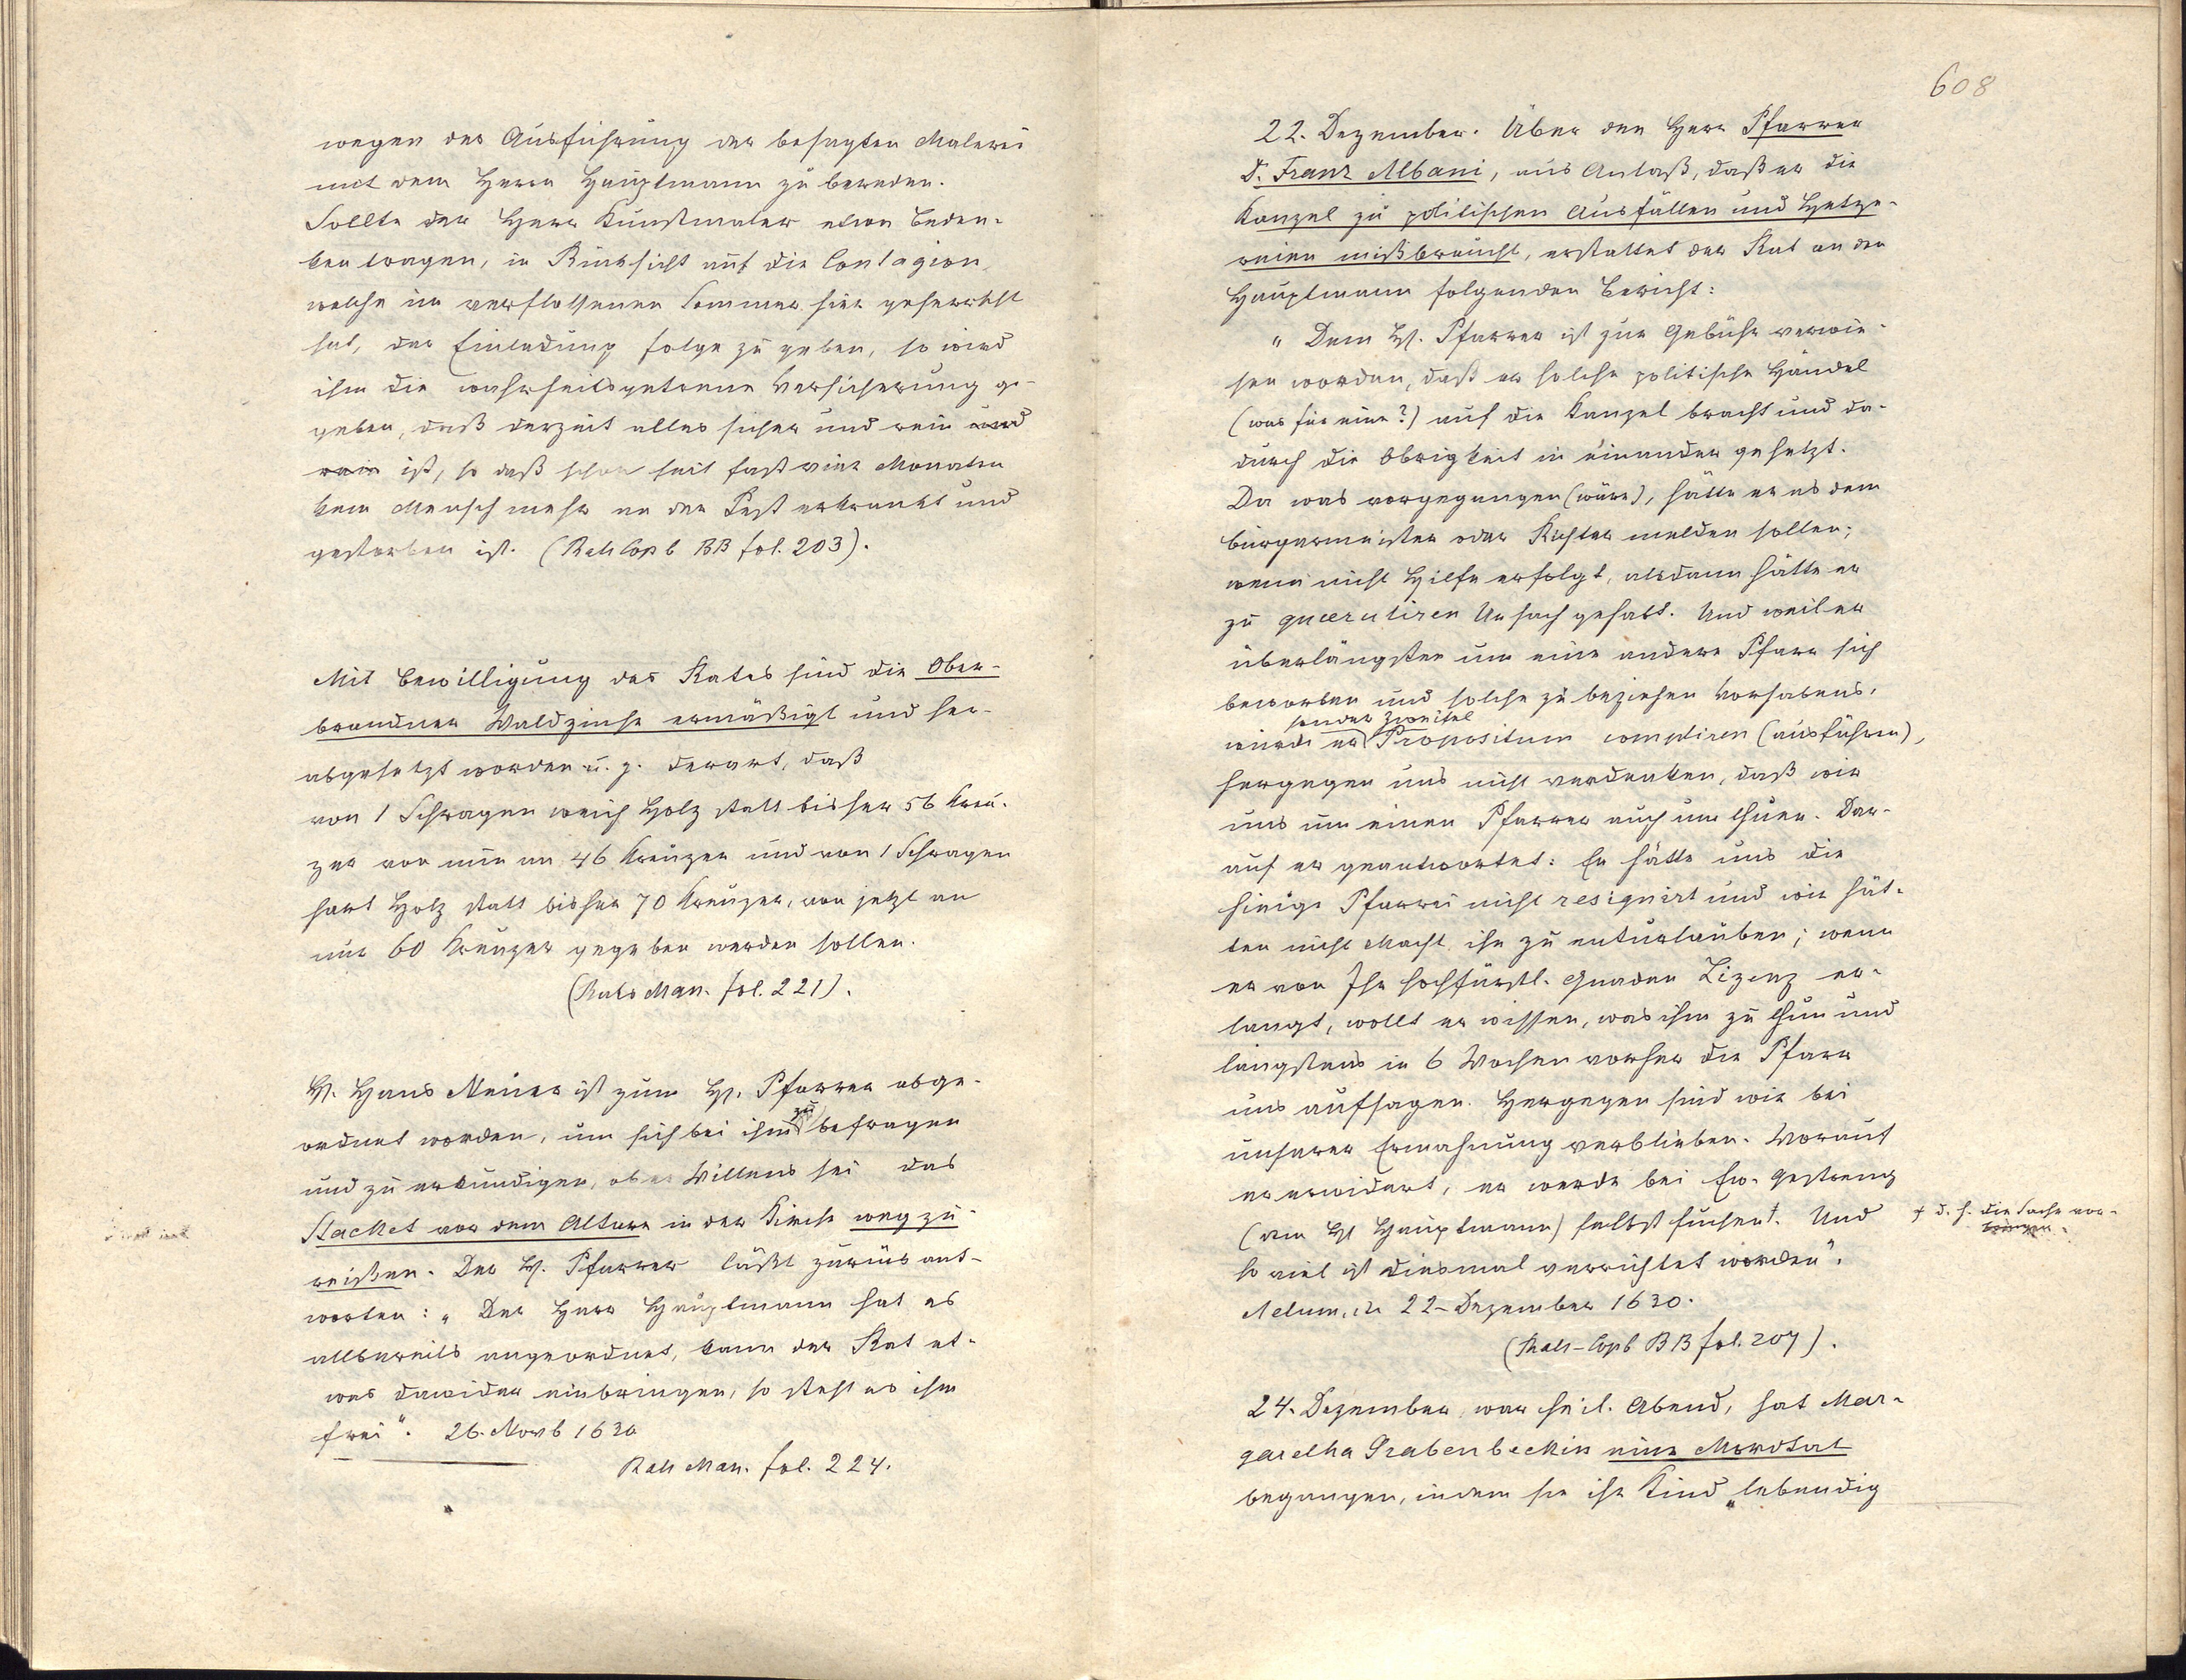 wegen der Ausführung der besagten Malerei
mit dem Herrn Hauptmann zu bereden.
Sollte der Herr Kunstmaler etwa Beden-
ken tragen, in Rücksicht auf die Contagion,
welche im verflossenen Sommer hier geherrscht
hat, der Einladung folge zu geben, so wird
ihm die wahrheitsgetreue Versicherung ge-
geben, daß derzeit alles sicher und rein und
rein ist, so daß schon seit fast vier Monaten
kein Mensch mehr an der Pest erkrankt und
gestorben ist. (Rats Copb BB fol. 203).
Mit Bewilligung des Rates sind die Ober-
brandner Waldzinse ermäßigt und her-
abgesetzt worden u. z. derart, daß
von 1 Schragen weich Holz statt bisher 56 Kreu-
zer von nun an 46 Kreuzer und von 1 Schragen
hart Holz statt bisher 70 Kreuzer, von jetzt an
nur 60 Kreuzer gegeben werden sollen.
(Rats Man. fol. 221).
H. Hans Neuer ist zum H. Pfarrer abge-
ordnet worden, um sich bei ihm zu befragen
und zu erkundigen, ob er Willens sei das
Stacket vor dem Altare in der Kirche weg zu-
reißen. Der H. Pfarrer läßt zurück ant-
worten: „Der Herr Hauptmann hat es
allbereits angeordnet, kann der Rat et-
was dawider einbringen, so steht es ihm
frei“. 26. Novb 1630
Rats Man. fol. 224.
608
22. Dezember. Über den Herr Pfarrer
D. Franz Albani, aus Anlaß, daß er die
Kanzel zu politischen Ausfällen und Hetze-
reien mißbraucht, erstattet der Rat an den
Hauptmann folgenden Bericht:
„Dem H. Pfarrer ist zur Gebühr verwie-
sen worden, daß er solche politische Händel
(was für eine?) auf die Kanzel bracht und da-
durch die Obrigkeit in einander gehetzt.
Da was vorgegangen (wäre), hätte er es dem
Bürgermeister oder Richter melden sollen;
wenn nicht Hilfe erfolgt, alsdann hätte er
zu querulieren Ursach gehabt. Und weil er
überlängsten um eine andere Pfarr sich
beworben und solche zu beziehen Vorhabens,
sonder Zweifel
würde er Propositum compliren (ausführen),
hergegen uns nicht verdenken, daß wir
uns um einen Pfarrer auch um thuen. Dar-
auf er geantwortet: Er hätte uns die
hinige Pfarrei nicht resignirt und wir hät-
ten nicht Macht ihn zu enturlauben; wenn
er von Ihr hochfürstl. Gnaden Lizenz er-
langt, wollt er wissen, was ihm zu thun und
längstens in 6 Wochen vorher die Pfarr
uns aufsagen. Hergegen sind wir bei
unserer Ermahnung verblieben. Worauf
er erwidert, er werde bei Ew. Gestreng
(dem H Hauptmann) selbst suchen†. Und
† d. h. die Sache vor-
bringen.
so viel ist diesmal verrichtet worden“.
Actum, den 22. Dezember 1630.
(Rats-Copb BB fol. 207).
24. Dezember, war heil. Abend, hat Mar-
garetha Grabenbeckin eine Mordtat
begangen, indem sie ihr Kind „lebendig